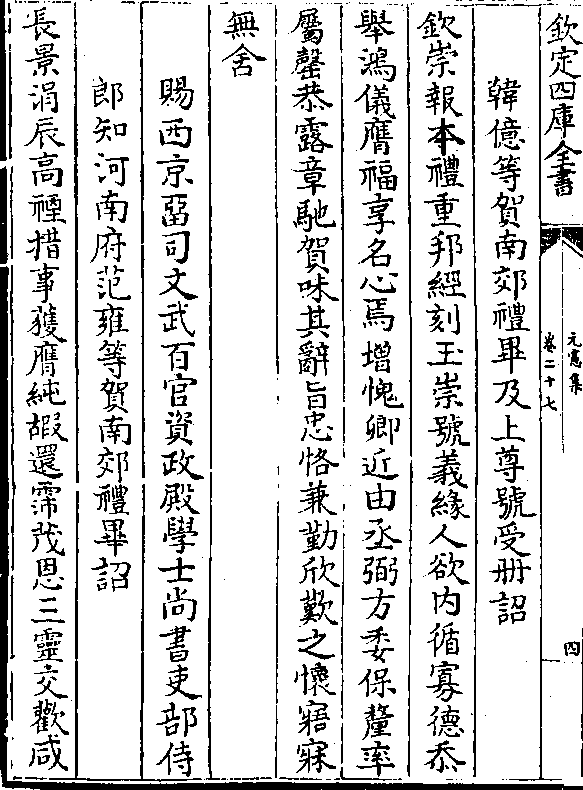 欽定四庫全書
元憲集
卷二十七
四
韓億等賀南郊禮畢及上尊號受冊詔
欽崇報本禮重邦經刻玉崇號義緣人欲内循寡德忝
舉鴻儀膺福享名心焉增愧卿近由丞弼方委保釐率
屬罄恭露章馳賀味其辭旨忠恪兼勤欣歎之懷寤寐
無舍
賜西京畱司文武百官資政殿學士尚書吏部侍
郎知河南府范雍等賀南郊禮畢詔
長景涓辰高禋措事獲膺純嘏還霈茂恩三靈交歡咸